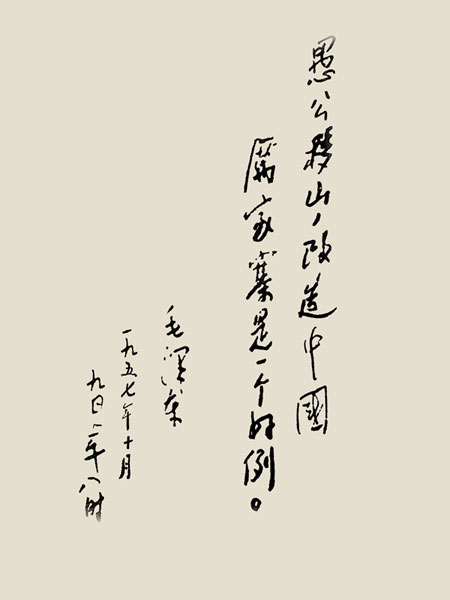 愚公移山,改造中國
厲家寨是一个好例。
毛澤東
一九五七年十月
九日上午八时